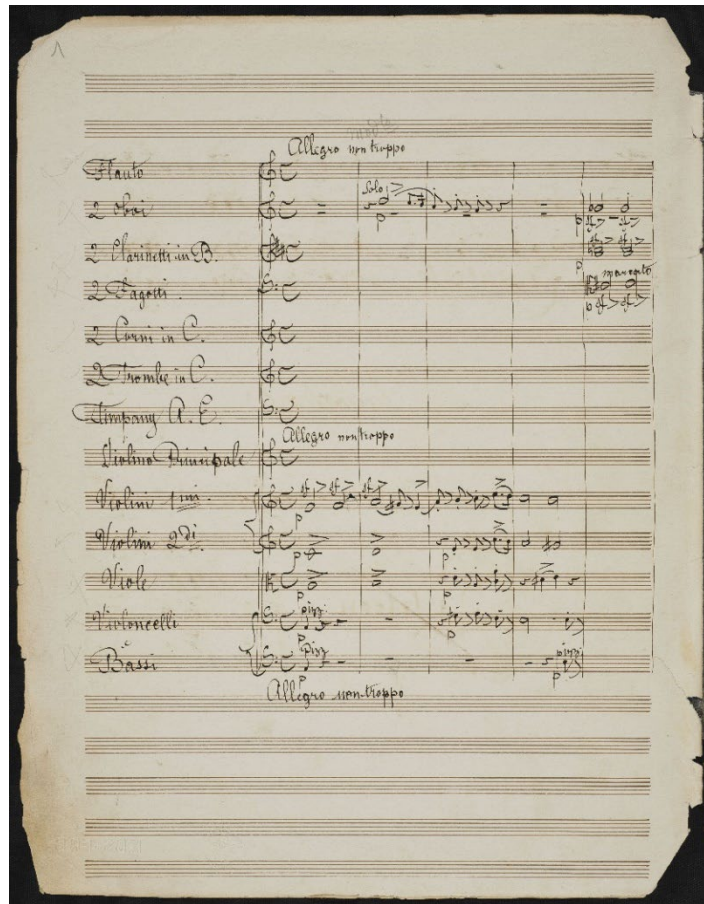 1
Allegro non troppo
Flauto
Solo
2 Oboi
p
p
2 Clarinetti in B.
p
marcato
2 Fagotti.
2 Corni in C.
2 Trombe in C.
Timpany A. E.
Allegro non troppo
Violino Principale
Violini 1mi.
p
Violini 2di.
p
p
Viole
p
p
pizz.
Violoncelli
p
p
e
pizz
pizz.
Bassi
p
p
Allegro non troppo